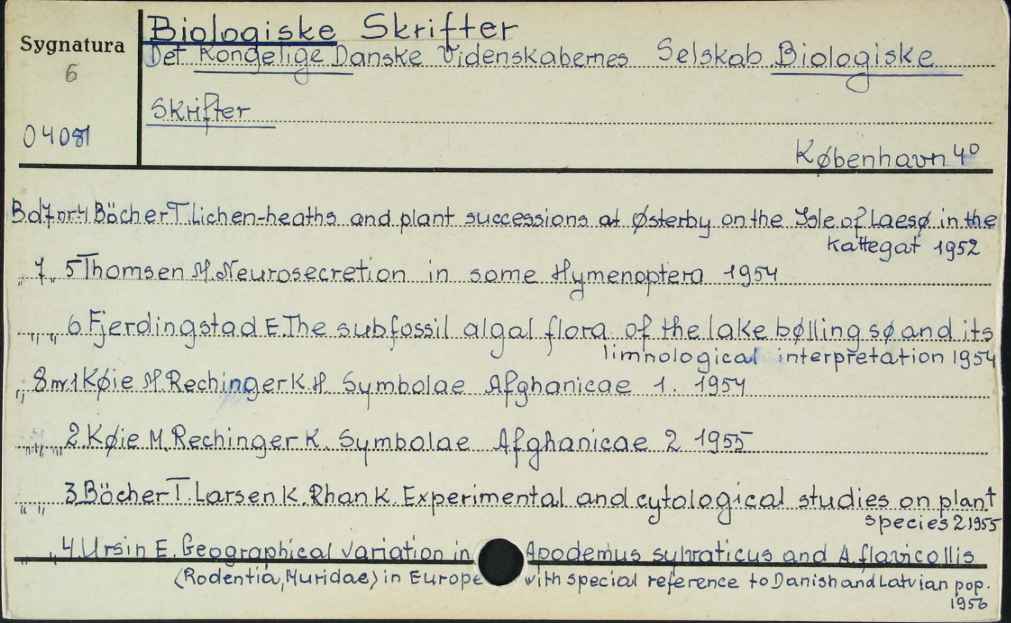 Biologiske Skrifter
Sygnatura
Det Kongelige Danske Videnskabernes Selskab Biologiske
6
Skrifter
04081
København 4º
Bd 7 nr 4 Böcher T. Lichen-heaths and plant successions at Østerby on the Isle of Laesø in the
Kattegat 1952
„ 7 „ 5 Thomsen M. Neurosecretion in some Hymenoptera 1954
„ „ 6. Fjerdingstad E. The subfossil algal flora of the lake bølling sø and its
limnological interpretation 1954
„ 8 nr 1 Køie M. Rechinger K.H. Symbolae Afghanicae 1. 1954
„ „ 2. Køie M. Rechinger K. Symbolae Afghanicae 2 1955
„ „ 3. Böcher T. Larsen K. Rhan K. Experimental and cytological studies on plant
species 2 1955
„ 4. Ursin E. Geographical variation in Apodemus sylvaticus and A. flavicollis
(Rodentia, Muridae) in Europe with special reference to Danish and Latvian pop.
1956